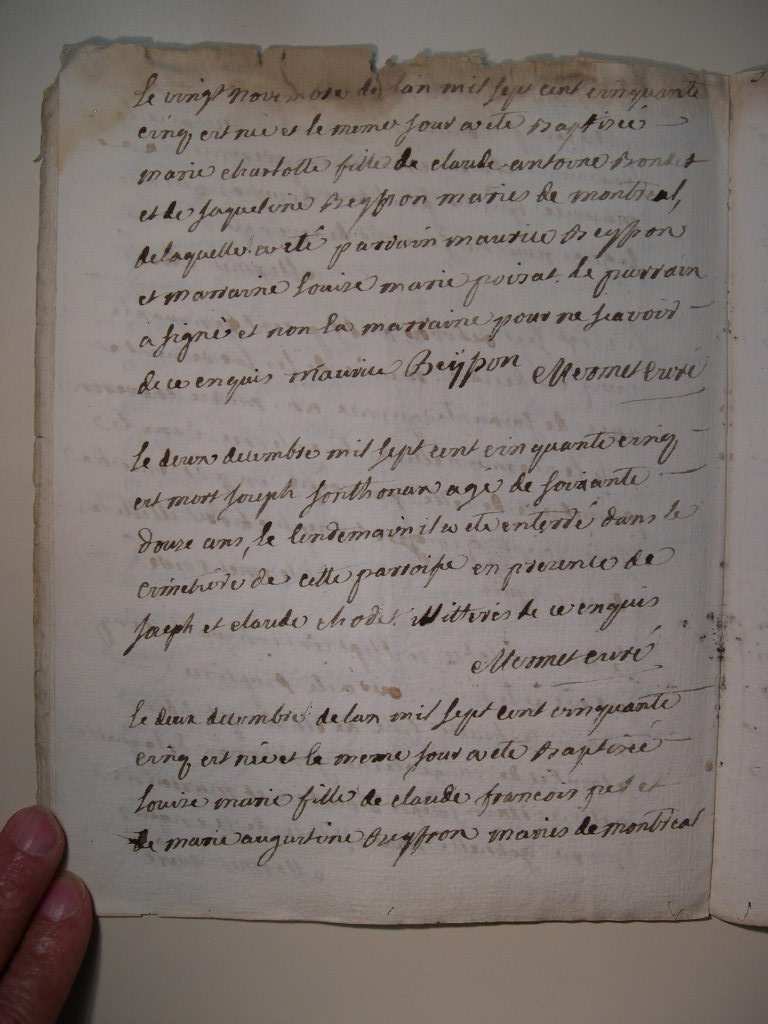 le vingt novembre de lan mil sept cent cinquante
cinq est née et le meme jour a ete Baptisée
marie charlotte fille de claude antoine Bondet
et de jaqueline Beysson mariés de montreal,
de laquelle a eté parrain maurice Beysson
et marraine louise marie poisat. le parrain
a signé et non la marraine pour ne scavoir
de ce enquis maurice Beÿson Mermet curé
le deux decembre mil sept cent cinquante cinq
est mort joseph Sonthonax agé de soixante
douze ans, le lendemain il a ete enterré dans le
cimetiere de cette parroisse en presence de
joseph et claude chodet illitterés de ce enquis
Mermet curé
le deux decembre de lan mil sept cent cinquante
cinq est née et le meme jour a ete Baptisée
louise marie fille de claude francois et
de marie augustine Beysson mariés de montreal